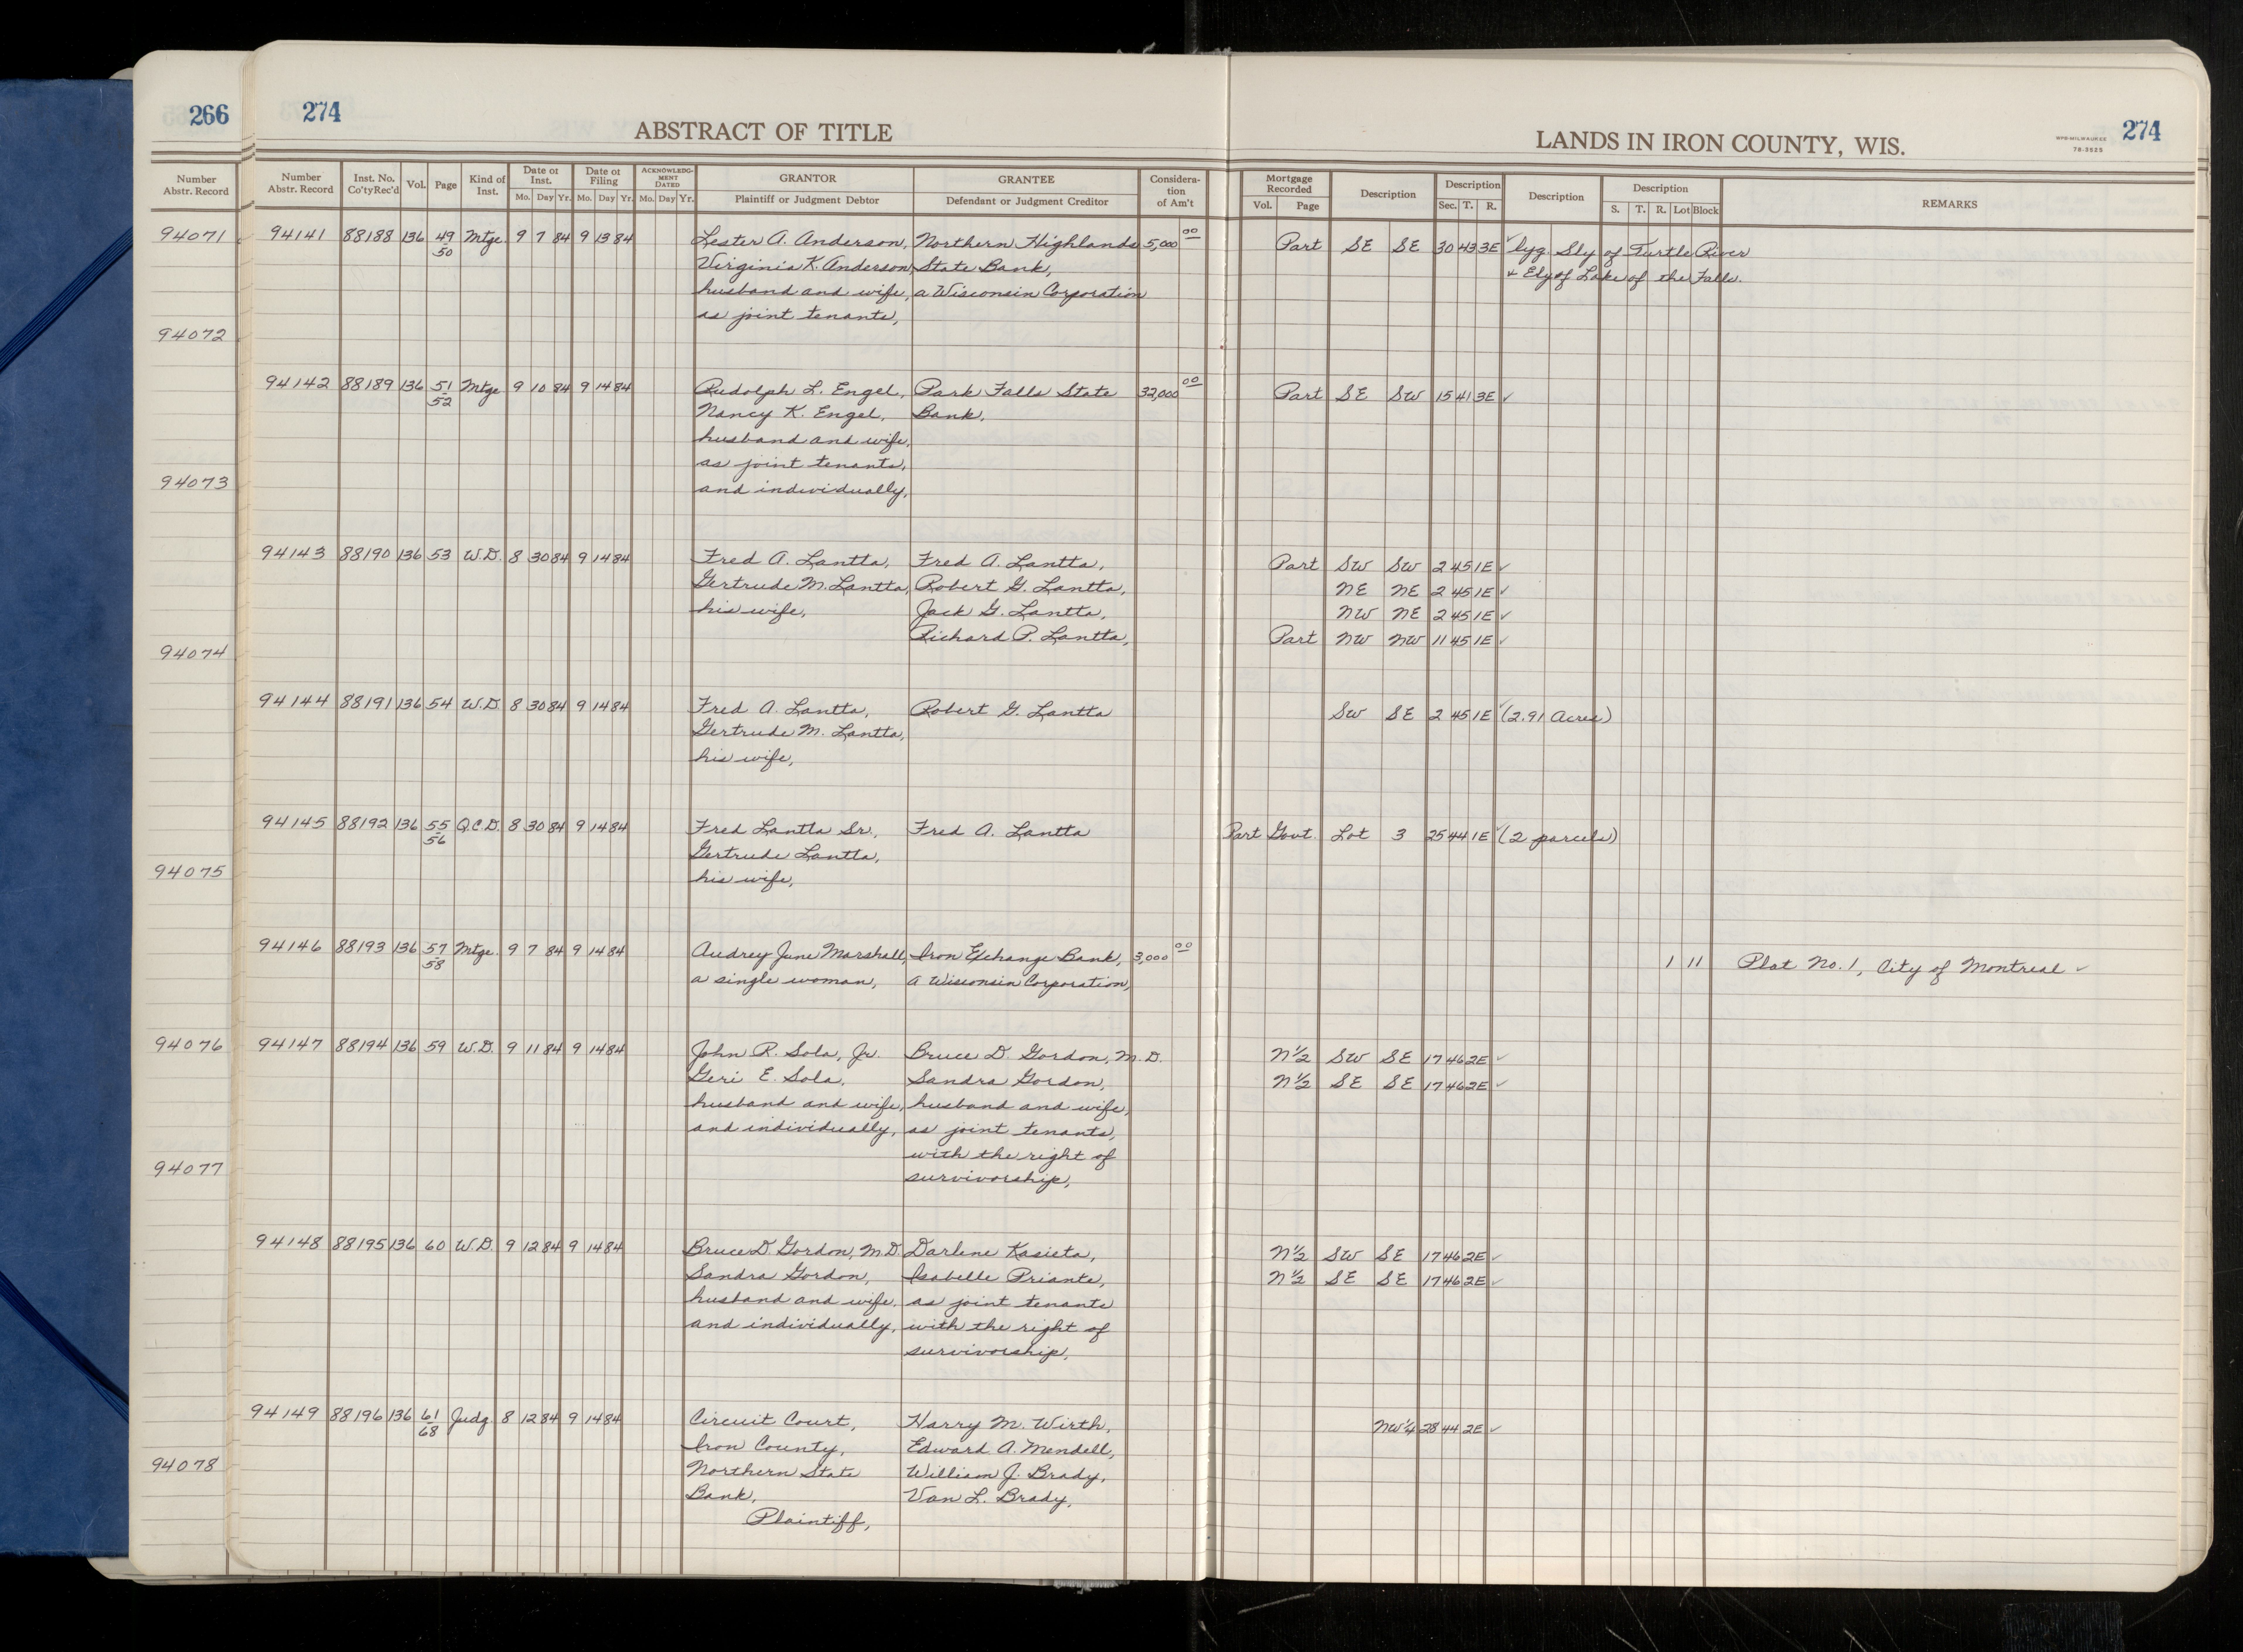 266
Number Abstr. Record
94071
94072
94073
94074
94075
94076
94077
94078
274
ABSTRACT OF TITLE
LANDS IN IRON COUNTY, WIS.
WPB-MILWAUKEE
78-3525
274
Number Abstr. Record Inst. No. Co'ty Rec'd Vol. Page Kind of Inst. Date of Inst. Mo. Day Yr. Date of Filing Mo. Day Yr. ACKNOWLEDGMENT DATED Mo. Day Yr. GRANTOR Plaintiff or Judgment Debtor GRANTEE Defendant or Judgment Creditor Consideration of Am't Mortgage Recorded Vol. Page Description Description Sec. T. R. Description Description S. T. R. Lot Block REMARKS
94141 88188 136 49/50 Mtge. 9 7 84 9 13 84 Lester A. Anderson, Northern Highlands 5,000 00 Part SE SE 30 43 3E ✓ lyg. Sly of Turtle River
Virginia K. Anderson, State Bank, & Ely of Lake of the Falls.
husband and wife, a Wisconsin Corporation
as joint tenants,
94142 88189 136 51/52 Mtge 9 10 84 9 14 84 Rudolph L. Engel, Park Falls State 32,000 00 Part SE SW 15 41 3E ✓
Nancy K. Engel, Bank,
husband and wife,
as joint tenants,
and individually,
94143 88190 136 53 W.D. 8 30 84 9 14 84 Fred A. Lantta, Fred A. Lantta, Part SW SW 2 45 1E ✓
Gertrude M. Lantta, Robert G. Lantta, NE NE 2 45 1E ✓
his wife, Jack G. Lantta, NW NE 2 45 1E ✓
Richard P. Lantta, Part NW NW 11 45 1E ✓
94144 88191 136 54 W.D. 8 30 84 9 14 84 Fred A. Lantta, Robert G. Lantta SW SE 2 45 1E ✓ (2.91 Acres)
Gertrude M. Lantta,
his wife,
94145 88192 136 55/56 Q.C.D. 8 30 84 9 14 84 Fred Lantta Sr., Fred A. Lantta Part Govt. Lot 3 25 44 1E ✓ (2 parcels)
Gertrude Lantta,
his wife,
94146 88193 136 57/58 Mtge. 9 7 84 9 14 84 Audrey June Marshall, Iron Exchange Bank, 3,000 00 1 11 Plat No. 1, City of Montreal ✓
a single woman, a Wisconsin Corporation,
94147 88194 136 59 W.D. 9 11 84 9 14 84 John R. Sola, Jr. Bruce D. Gordon, M.D. N½ SW SE 17 46 2E ✓
Geri E. Sola, Sandra Gordon, N½ SE SE 17 46 2E ✓
husband and wife, husband and wife,
and individually, as joint tenants,
with the right of
survivorship,
94148 88195 136 60 W.D. 9 12 84 9 14 84 Bruce D. Gordon, M.D. Darlene Kasieta, N½ SW SE 17 46 2E ✓
Sandra Gordon, Isabelle Priante, N½ SE SE 17 46 2E ✓
husband and wife, as joint tenants
and individually, with the right of
survivorship,
94149 88196 136 61/68 Judg. 8 12 84 9 14 84 Circuit Court, Harry M. Wirth, NW¼ 28 44 2E ✓
Iron County, Edward A. Mendell,
Northern State William J. Brady,
Bank, Van L. Brady,
Plaintiff,